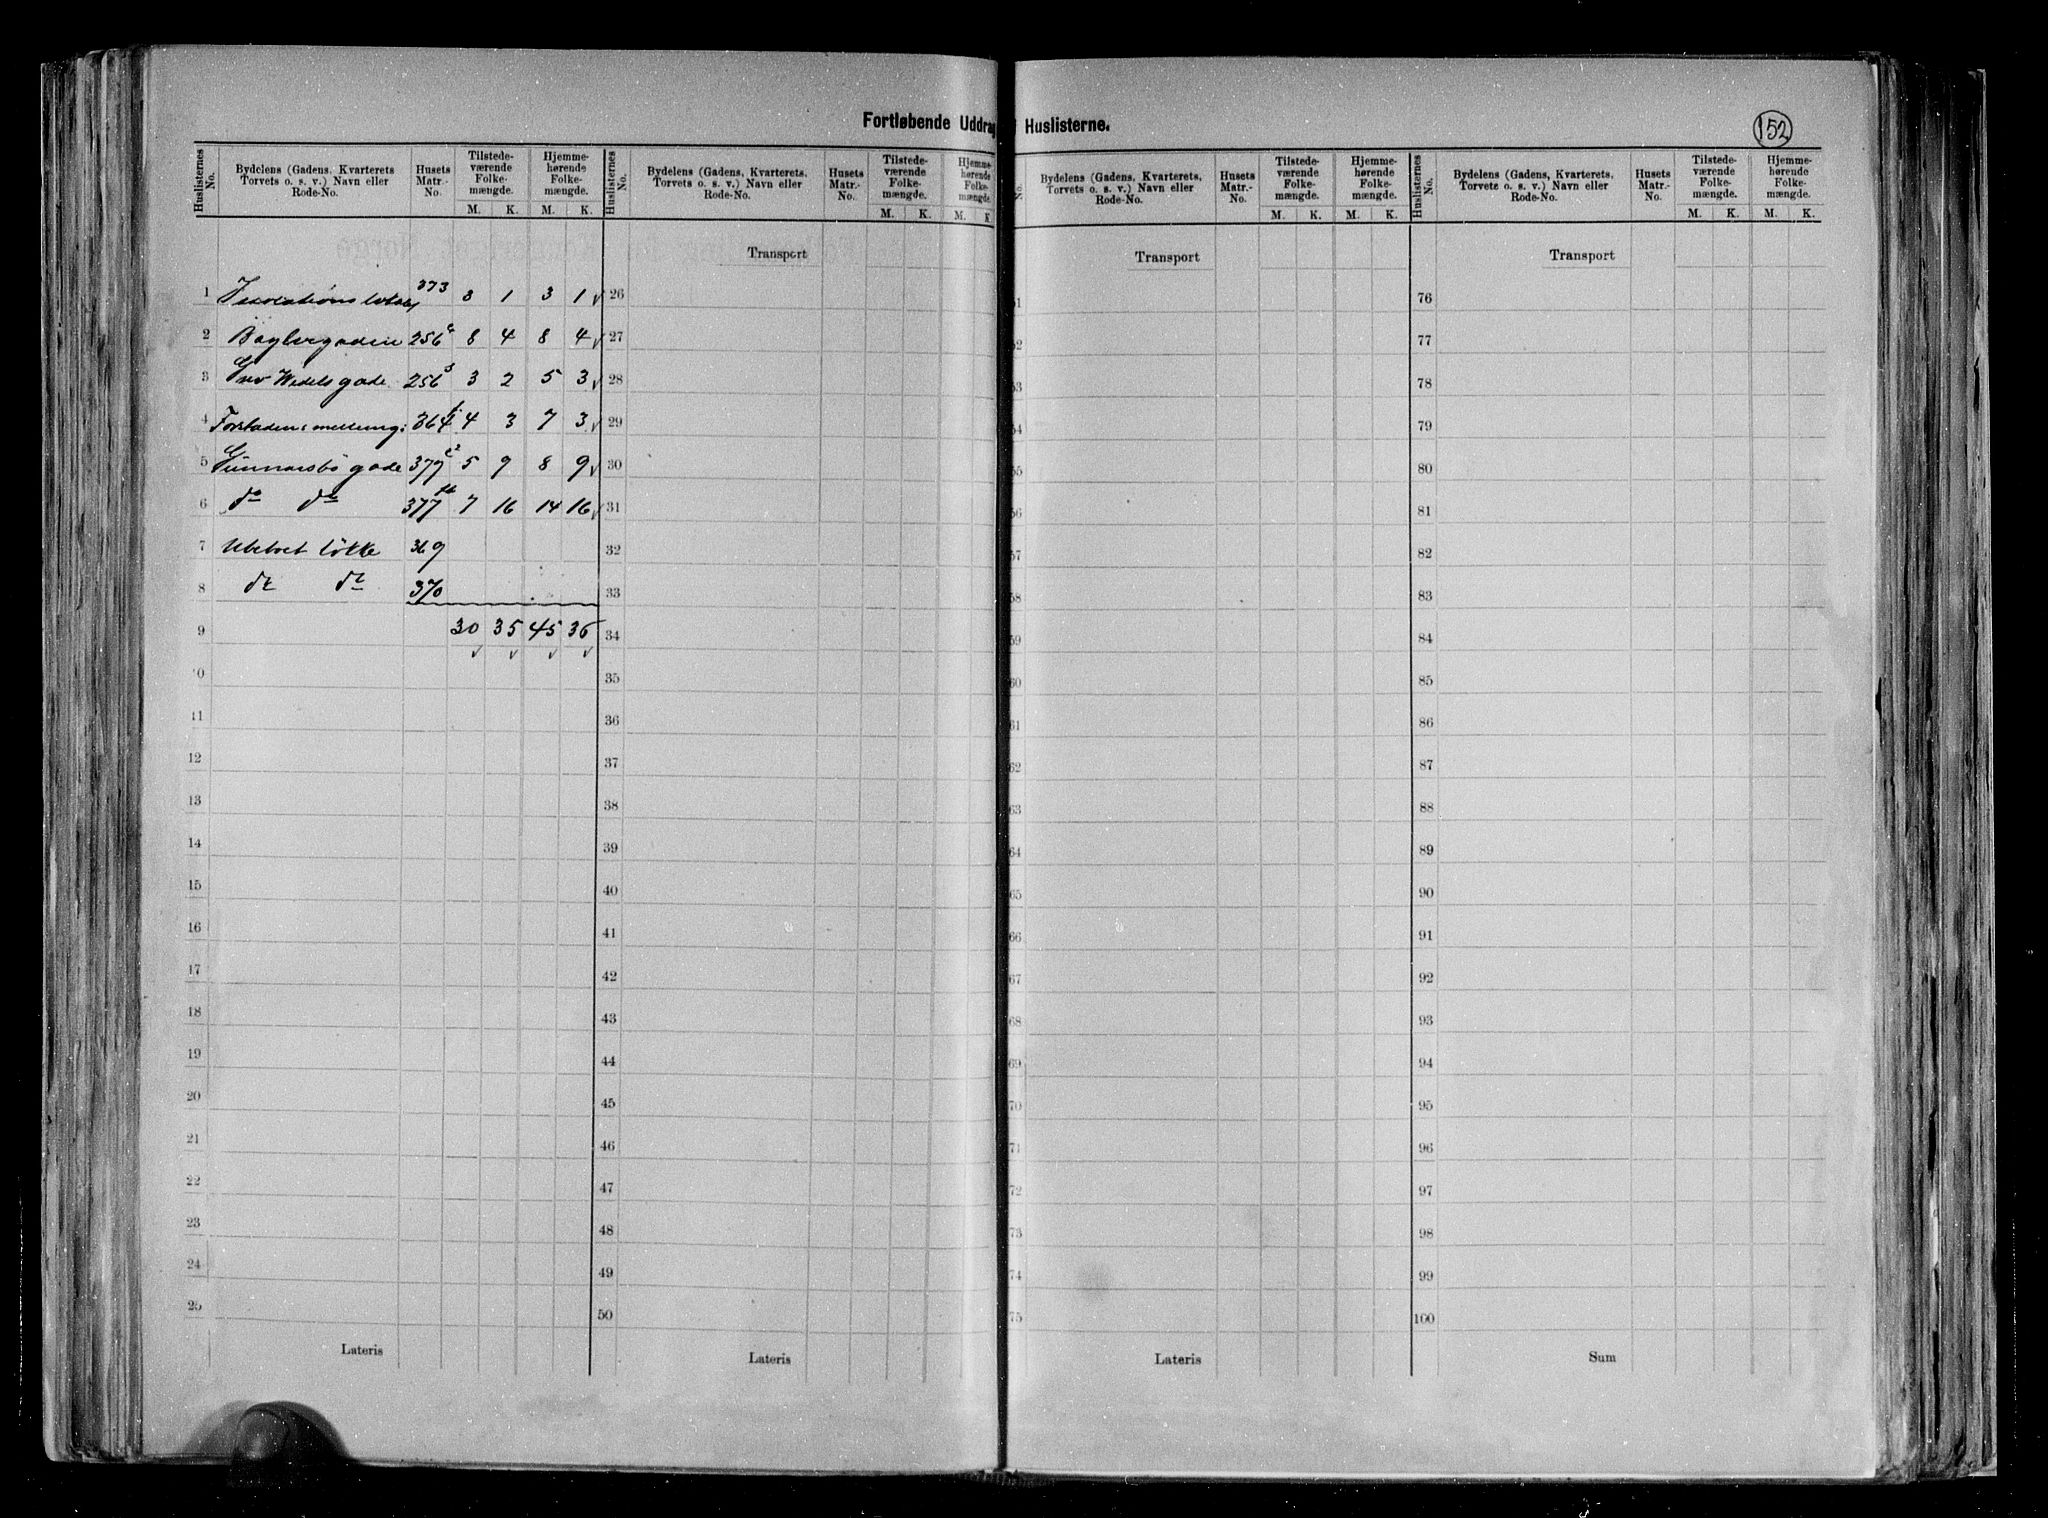 Fortløbende Uddrag Huslisterne.
152
Huslisternes No. Bydelens (Gadens, Kvarterets, Torvets o. s. v.) Navn eller Rode-No. Husets Matr.-No. Tilstedeværende Folkemængde. Hjemmehørende Folkemængde.
M. K. M. K.
Huslisternes No. Bydelens (Gadens, Kvarterets, Torvets o. s. v.) Navn eller Rode-No. Husets Matr.-No. Tilstedeværende Folkemængde. Hjemmehørende Folkemængde.
M. K. M. K
No. Bydelens (Gadens, Kvarterets, Torvets o. s. v.) Navn eller Rode-No. Husets Matr.-No. Tilstedeværende Folkemængde. Hjemmehørende Folkemængde.
M. K. M. K.
Huslisternes No. Bydelens (Gadens, Kvarterets, Torvets o. s. v.) Navn eller Rode-No. Husets Matr.-No. Tilstedeværende Folkemængde. Hjemmehørende Folkemængde.
M. K. M. K.
Transport Transport Transport
1 373 3 1 3 1 ✓ 26 51 76
2 Baglergaden 256 8 4 8 4 ✓ 27 52 77
3 Grev Wedels gade 256 3 2 5 3 ✓ 28 53 78
4 364 4 3 7 3 ✓ 29 54 79
5 Gunnarsbø gade 377 5 9 8 9 ✓ 30 55 80
6 do do 377 7 16 14 16 ✓ 31 56 81
7 Ubeboet løkke 369 32 57 82
8 do do 370 33 58 83
9 30 35 45 36 34 59 84
✓ ✓ ✓ ✓
10 35 60 85
11 36 61 86
12 37 62 87
13 38 63 88
14 39 64 89
15 40 65 90
16 41 66 91
17 42 67 92
18 43 68 93
19 44 69 94
20 45 70 95
21 46 71 96
22 47 72 97
23 48 73 98
24 49 74 99
25 50 75 100
Lateris Lateris Lateris Sum